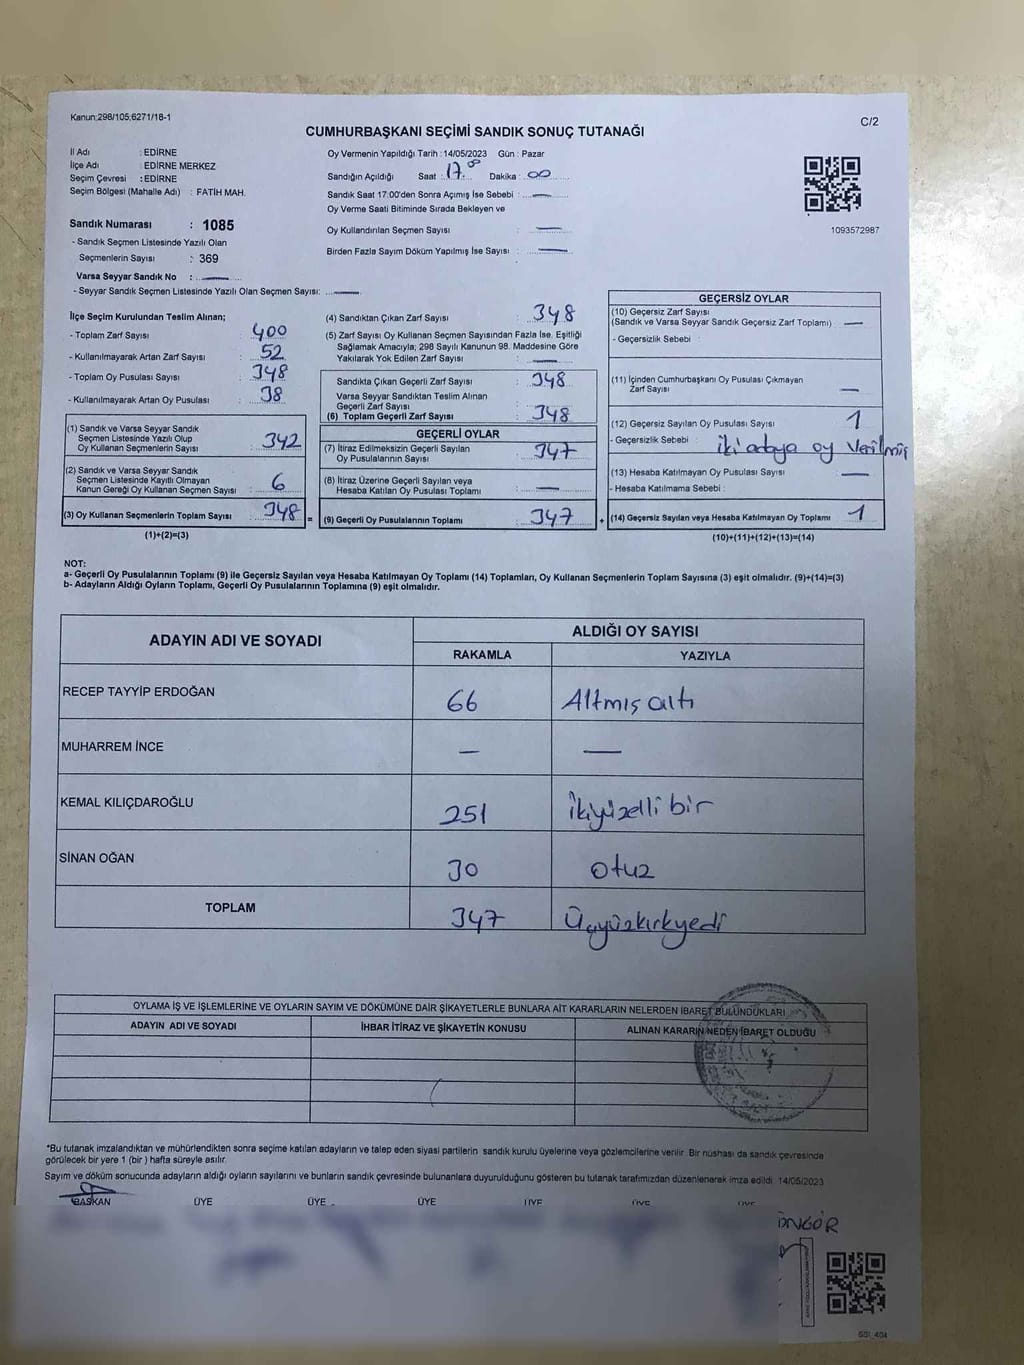 Kanun:298/105,6271/18-1
C/2
CUMHURBAŞKANI SEÇİMİ SANDIK SONUÇ TUTANAĞI
İl Adı : EDİRNE
İlçe Adı : EDİRNE MERKEZ
Seçim Çevresi : EDİRNE
Seçim Bölgesi (Mahalle Adı) : FATİH MAH.
Sandık Numarası : 1085
- Sandık Seçmen Listesinde Yazılı Olan
Seçmenlerin Sayısı : 369
Varsa Seyyar Sandık No : —
- Seyyar Sandık Seçmen Listesinde Yazılı Olan Seçmen Sayısı: —
Oy Vermenin Yapıldığı Tarih : 14/05/2023 Gün : Pazar
Sandığın Açıldığı Saat : 17.00 Dakika : 00
Sandık Saat 17:00'den Sonra Açımış İse Sebebi : —
Oy Verme Saati Bitiminde Sırada Bekleyen ve
Oy Kullandırılan Seçmen Sayısı : —
Birden Fazla Sayım Döküm Yapılmış İse Sayısı : —
1093572987
İlçe Seçim Kurulundan Teslim Alınan;
- Toplam Zarf Sayısı : 400
- Kullanılmayarak Artan Zarf Sayısı : 52
- Toplam Oy Pusulası Sayısı : 348
- Kullanılmayarak Artan Oy Pusulası : 38
(1) Sandık ve Varsa Seyyar Sandık
Seçmen Listesinde Yazılı Olup
Oy Kullanan Seçmenlerin Sayısı : 342
(2) Sandık ve Varsa Seyyar Sandık
Seçmen Listesinde Kayıtlı Olmayan
Kanun Gereği Oy Kullanan Seçmen Sayısı : 6
(3) Oy Kullanan Seçmenlerin Toplam Sayısı : 348 =
(1)+(2)=(3)
(4) Sandıktan Çıkan Zarf Sayısı : 348
(5) Zarf Sayısı Oy Kullanan Seçmen Sayısından Fazla İse, Eşitliği
Sağlamak Amacıyla; 298 Sayılı Kanunun 98. Maddesine Göre
Yakılarak Yok Edilen Zarf Sayısı : —
Sandıkta Çıkan Geçerli Zarf Sayısı : 348
Varsa Seyyar Sandıktan Teslim Alınan
Geçerli Zarf Sayısı
(6) Toplam Geçerli Zarf Sayısı : 348
GEÇERLİ OYLAR
(7) İtiraz Edilmeksizin Geçerli Sayılan
Oy Pusulalarının Sayısı : 347
(8) İtiraz Üzerine Geçerli Sayılan veya
Hesaba Katılan Oy Pusulası Toplamı : —
(9) Geçerli Oy Pusulalarının Toplamı : 347 +
GEÇERSİZ OYLAR
(10) Geçersiz Zarf Sayısı
(Sandık ve Varsa Seyyar Sandık Geçersiz Zarf Toplamı) —
- Geçersizlik Sebebi :
(11) İçinden Cumhurbaşkanı Oy Pusulası Çıkmayan
Zarf Sayısı —
(12) Geçersiz Sayılan Oy Pusulası Sayısı 1
- Geçersizlik Sebebi : iki adaya oy verilmiş
(13) Hesaba Katılmayan Oy Pusulası Sayısı —
- Hesaba Katılmama Sebebi :
(14) Geçersiz Sayılan veya Hesaba Katılmayan Oy Toplamı 1
(10)+(11)+(12)+(13)=(14)
NOT:
a- Geçerli Oy Pusulalarının Toplamı (9) ile Geçersiz Sayılan veya Hesaba Katılmayan Oy Toplamı (14) Toplamları, Oy Kullanan Seçmenlerin Toplam Sayısına (3) eşit olmalıdır. (9)+(14)=(3)
b- Adayların Aldığı Oyların Toplamı, Geçerli Oy Pusulalarının Toplamına (9) eşit olmalıdır.
ADAYIN ADI VE SOYADI ALDIĞI OY SAYISI
RAKAMLA YAZIYLA
RECEP TAYYİP ERDOĞAN 66 Altmış altı
MUHARREM İNCE — —
KEMAL KILIÇDAROĞLU 251 ikiyüzelli bir
SİNAN OĞAN 30 otuz
TOPLAM 347 Üçyüzkırkyedi
OYLAMA İŞ VE İŞLEMLERİNE VE OYLARIN SAYIM VE DÖKÜMÜNE DAİR ŞİKAYETLERLE BUNLARA AİT KARARLARIN NELERDEN İBARET BULUNDUKLARI
ADAYIN ADI VE SOYADI İHBAR İTİRAZ VE ŞİKAYETİN KONUSU ALINAN KARARIN NEDEN İBARET OLDUĞU
*Bu tutanak imzalandıktan ve mühürlendikten sonra seçime katılan adayların ve talep eden siyasi partilerin sandık kurulu üyelerine veya gözlemcilerine verilir. Bir nüshası da sandık çevresinde
görülecek bir yere 1 (bir ) hafta süreyle asılır.
Sayım ve döküm sonucunda adayların aldığı oyların sayılarını ve bunların sandık çevresinde bulunanlara duyurulduğunu gösteren bu tutanak tarafımızdan düzenlenerek imza edildi. 14/05/2023
BAŞKAN ÜYE ÜYE ÜYE ÜYE ÜYE ÜYE